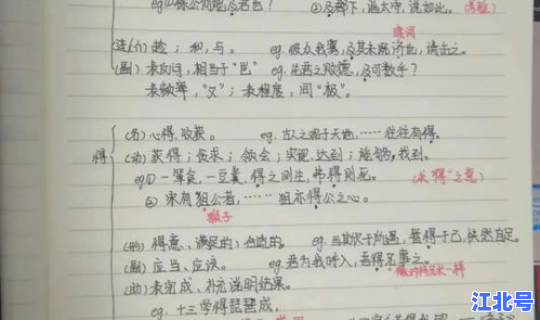 ②及郡下,诣太守,说如此。
(连/介)趁;和,与。 eg. 彼众我寡,及其未既济也,请击之。
渡河
(副)表反问,相当于"岂" eg. 是君之败德,及可数乎?
表频率,"又";表程度,同"极"。
得
(名)心得,收获。 eg. 古人之观于天地,……往往有得。
(动)获得;贪求;领会;实现,达到;能够,找到。
eg① 一箪食,一豆羹,得之则生,弗得则死。("求得"之意)
② 宋有狙公者,……狙亦得公之心。
猴子
(形)得意、满足的;合适的。 eg. 当其欣于所遇,暂得于己,快然自足。
(副)应当、应该。 eg. 君为我呼入,吾得兄事之。
(助)表完成、补充说明结果。
eg. 十三学得琵琶成,
江北号